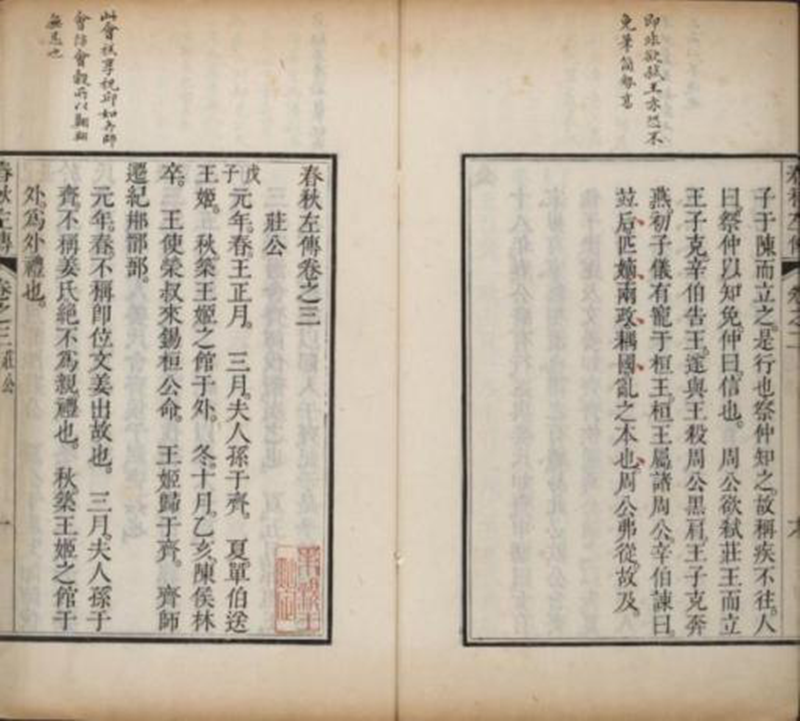 春秋左傳 卷之二
子于陳而立之。是行也祭仲知之。故稱疾不往。人
曰。祭仲以知免。仲曰。信也。 周公欲弒莊王而立
王子克。辛伯告王。遂與王殺周公黑肩。王子克奔
燕。初子儀有寵于桓王。桓王屬諸周公。辛伯諫曰。
竝后匹嫡兩政耦國。亂之本也。周公弗從。故及。
欲弒王亦然不
免筆簡
春秋左傳卷之三
莊公
戊子元年。春。王正月。 三月。夫人孫于齊。 夏。單伯送
王姬。 秋。築王姬之館于外。 冬。十月。乙亥陳侯林
卒。 王使榮叔來錫桓公命。 王姬歸于齊。 齊師
遷紀郱鄑郚。
元年。春。不稱即位文姜出故也。 三月。夫人孫于
齊。不稱姜氏絕不爲親禮也。 秋。築王姬之館于
外。爲外禮也。
春秋左傳 卷之三 莊公 一
此會禚享祝邱如齊師
會防會穀所以翻翻
無忌也